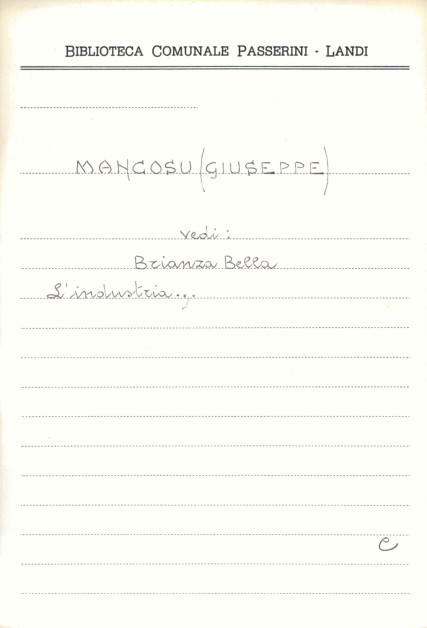 BIBLIOTECA COMUNALE PASSERINI - LANDI
MANCOSU (GIUSEPPE)
vedi :
Brianza Bella
L'industria...
C